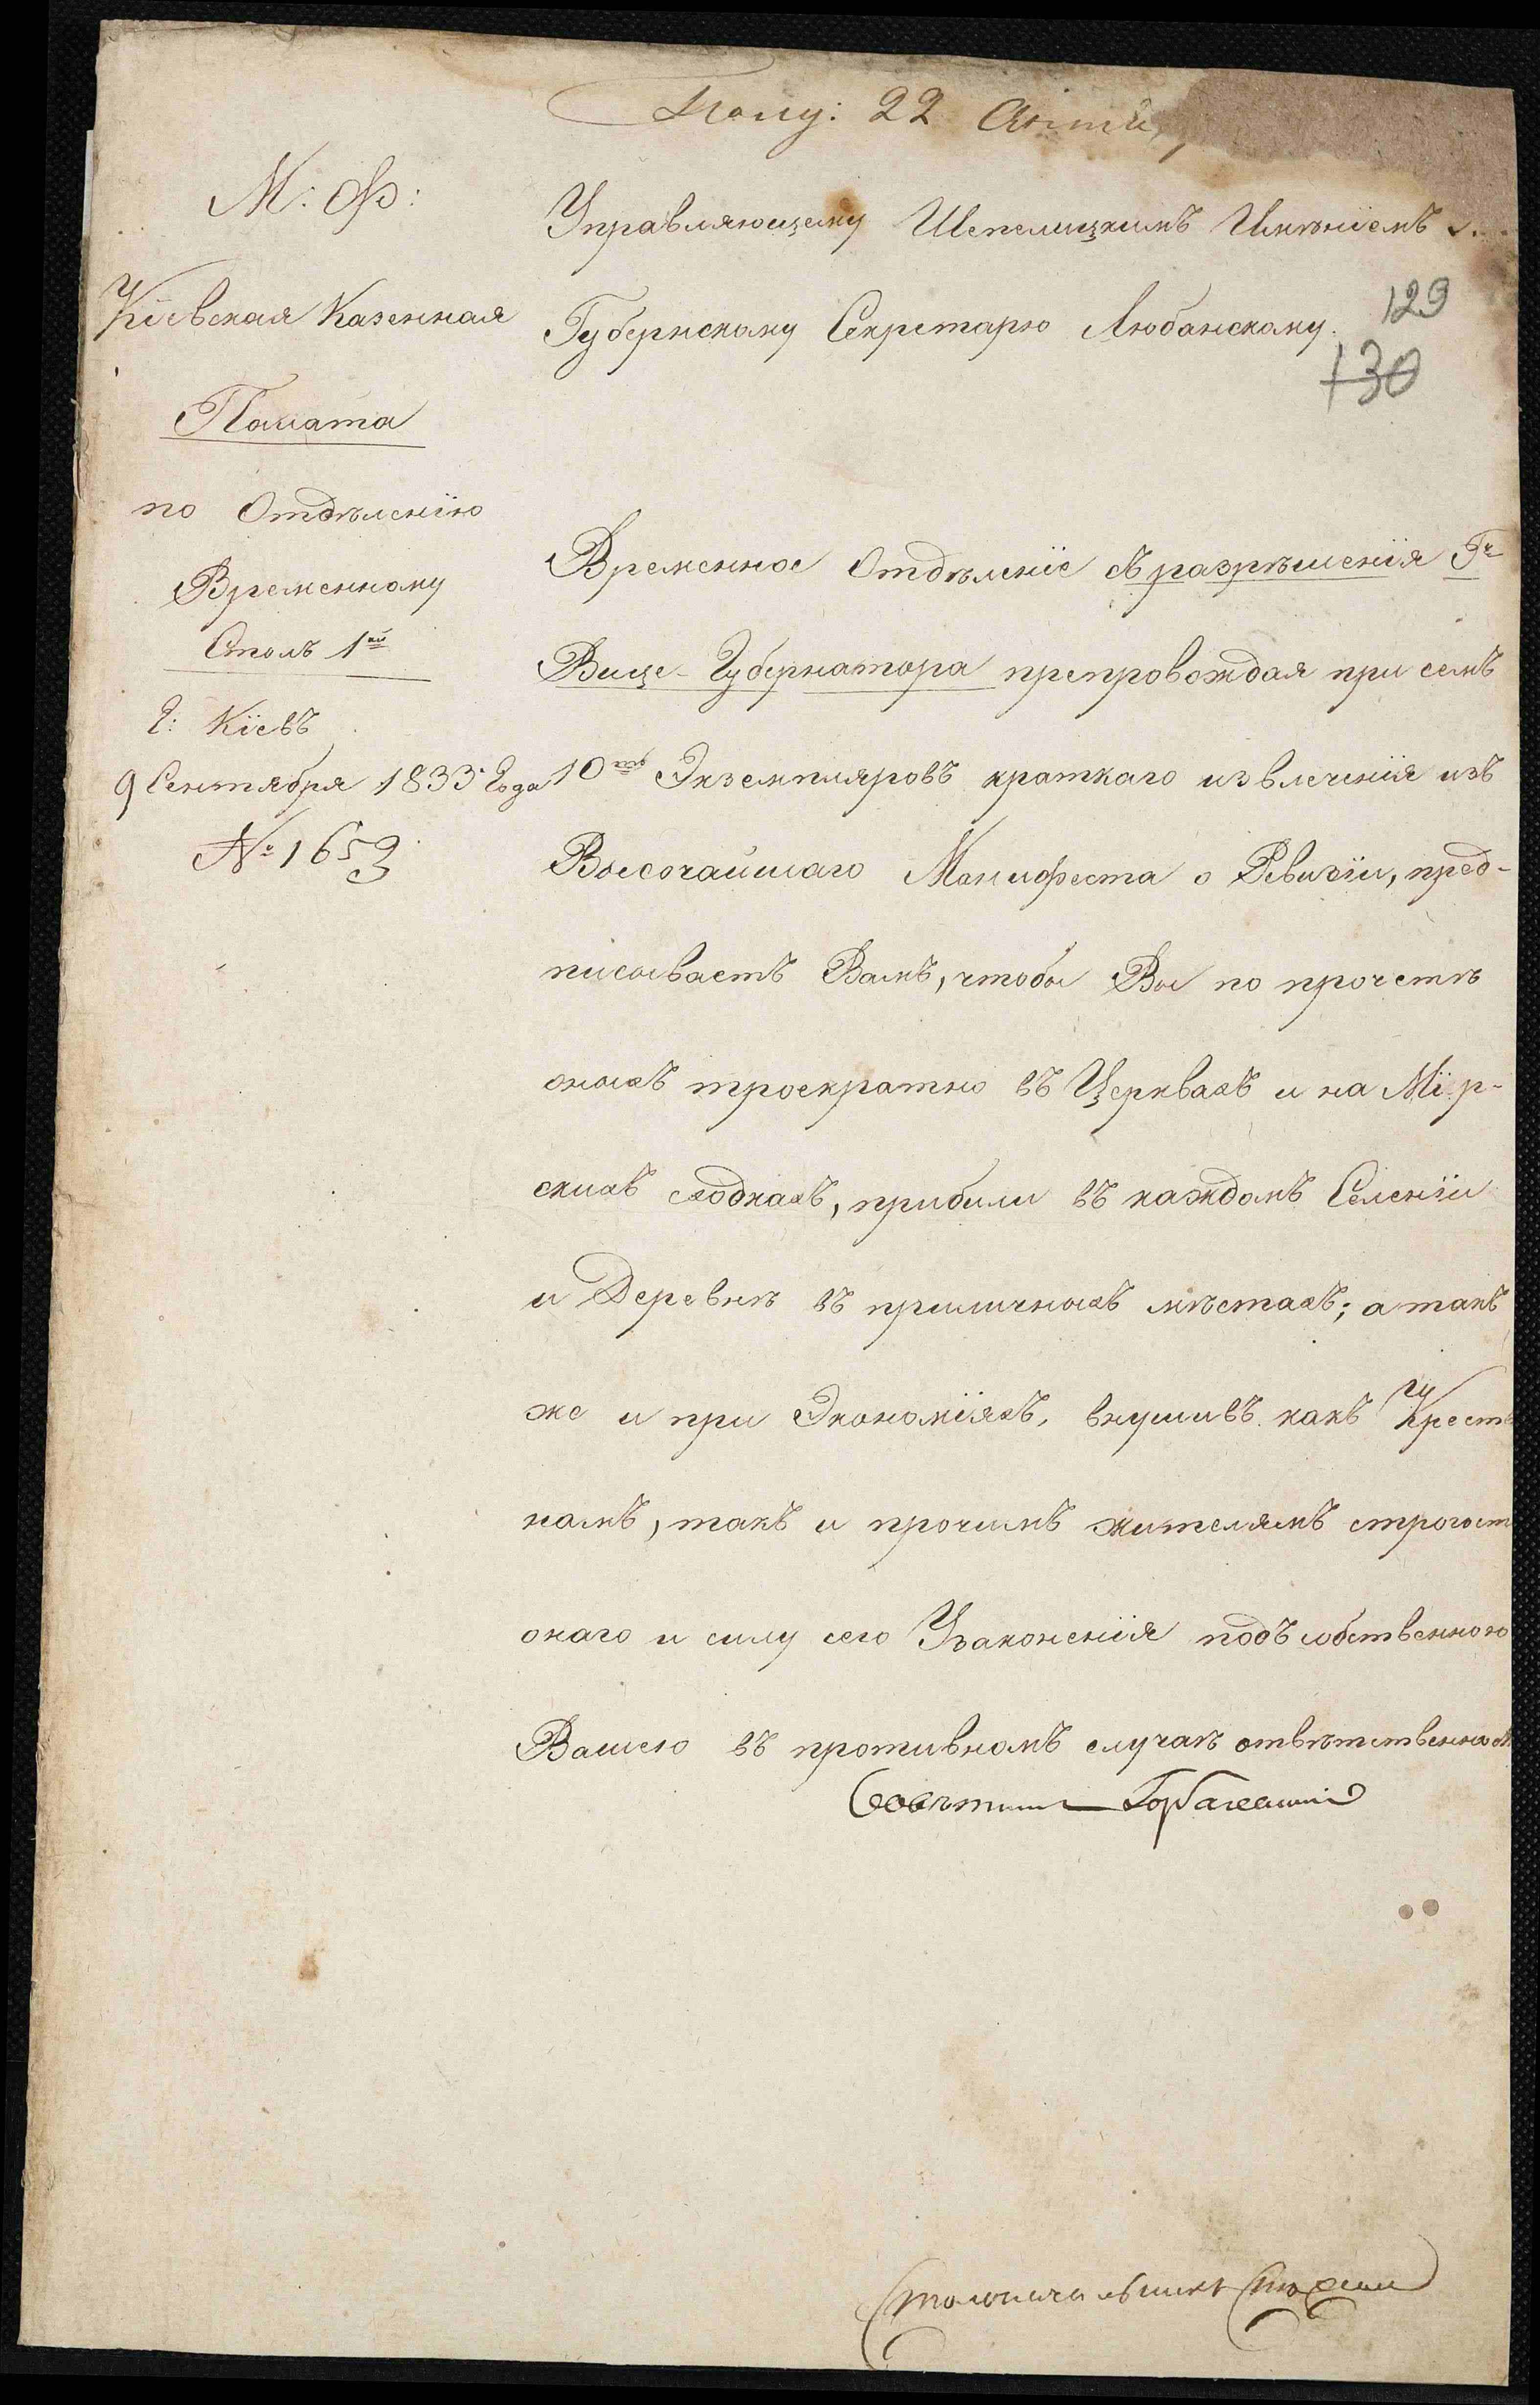 Полу: 22
М: Ф:
Кіевская Казенная
Палата
по Отдѣленію
Временному
Столъ 1й
Г: Кіевъ
9 Сентября 1833 Года
№ 1653
Управляющему Шепелицкимъ Имѣніемъ
Губернскому Секретарю Любанскому.
129
130
Временное Отдѣленіе съ разрѣшенія Гн
Вице-Губернатора препровождая при семъ
10ть Экземпляровъ краткаго извлеченія изъ
Высочайшаго Манифеста о Ревизіи, пред-
писываетъ Вамъ, чтобы Вы по прочетѣ
оныхъ троекратно въ Церквахъ и на Мір-
скихъ сходкахъ, прибили въ каждомъ Селеніи
и Деревнѣ въ приличныхъ мѣстахъ; а такъ
же и при Экономіяхъ, внушивъ какъ Кресть
намъ, такъ и прочимъ жителямъ строгост
онаго и силу сего Узаконенія подъ собственною
Вашею въ противномъ случаѣ отвѣтственност
Совѣтникъ
Столоначальникъ